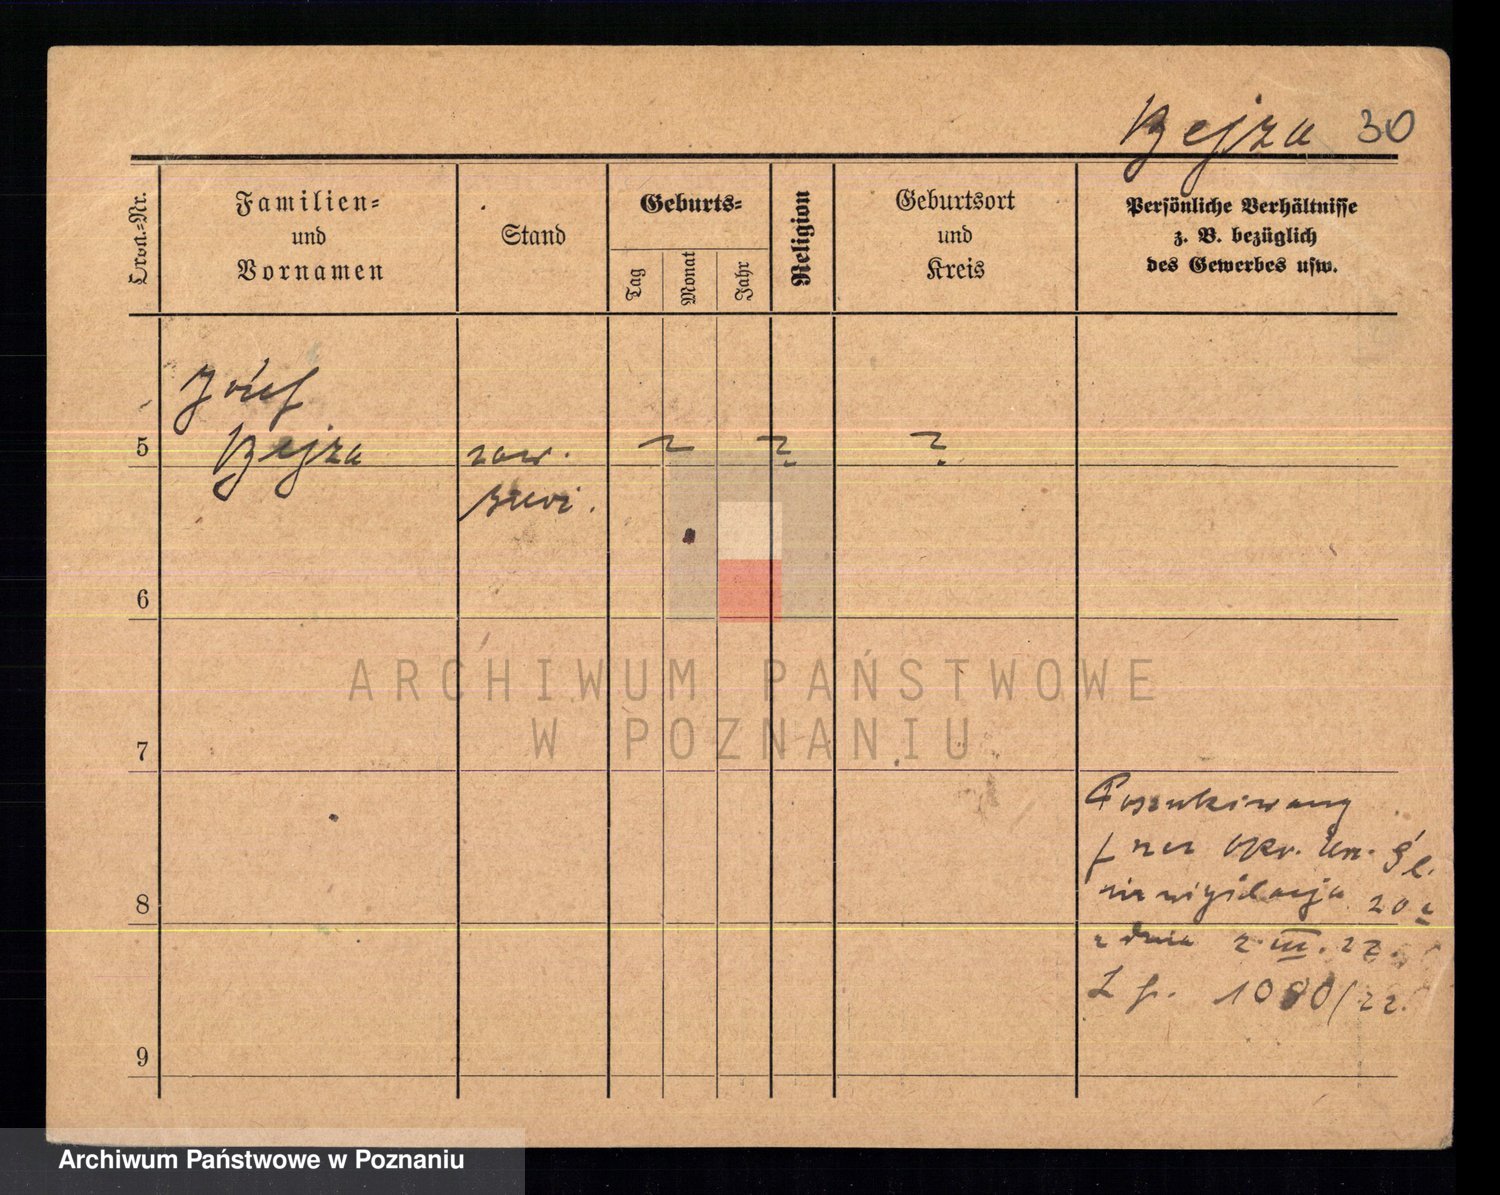 Bejza 30
Ord.-Nr.
Familien-
und
Vornamen
Stand
Geburts-
Tag
Monat
Jahr
Religion
Geburtsort
und
Kreis
Persönliche Verhältnisse
z. B. bezüglich
des Gewerbes usw.
Józef
5 Bejza zaw. ? ? ?
6
ARCHIWUM PAŃSTWOWE
W POZNANIU
7
Poszukiwany
p nez okr. Śl.
8 20
z dnia 2.III.22.
L p. 1080/22.
9
Archiwum Państwowe w Poznaniu